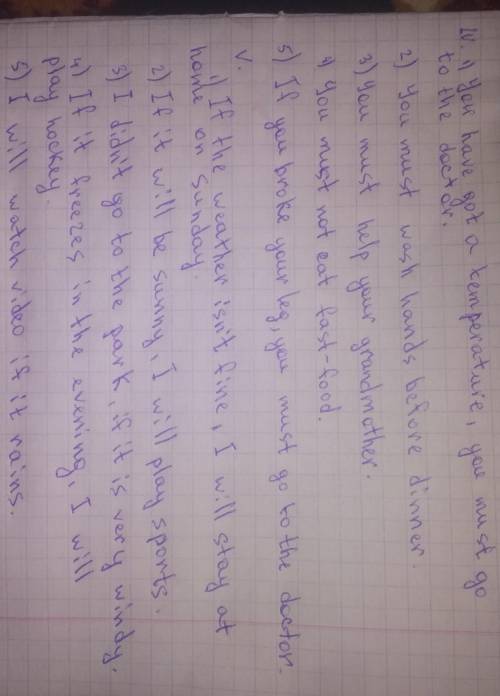 IV. 1) You have got a temperature, you must go
to the doctor.
2) You must wash hands before dinner.
3) You must help your grandmother.
4) You must not eat fast-food.
5) If you broke your leg, you must go to the doctor.
V.
1) If the weather isn't fine, I will stay at
home on sunday.
2) If it will be sunny, I will play sports.
3) I didn't go to the park, if it is very windy.
4) If it freezes in the evening, I will
play hockey.
5) I will watch video if it rains.